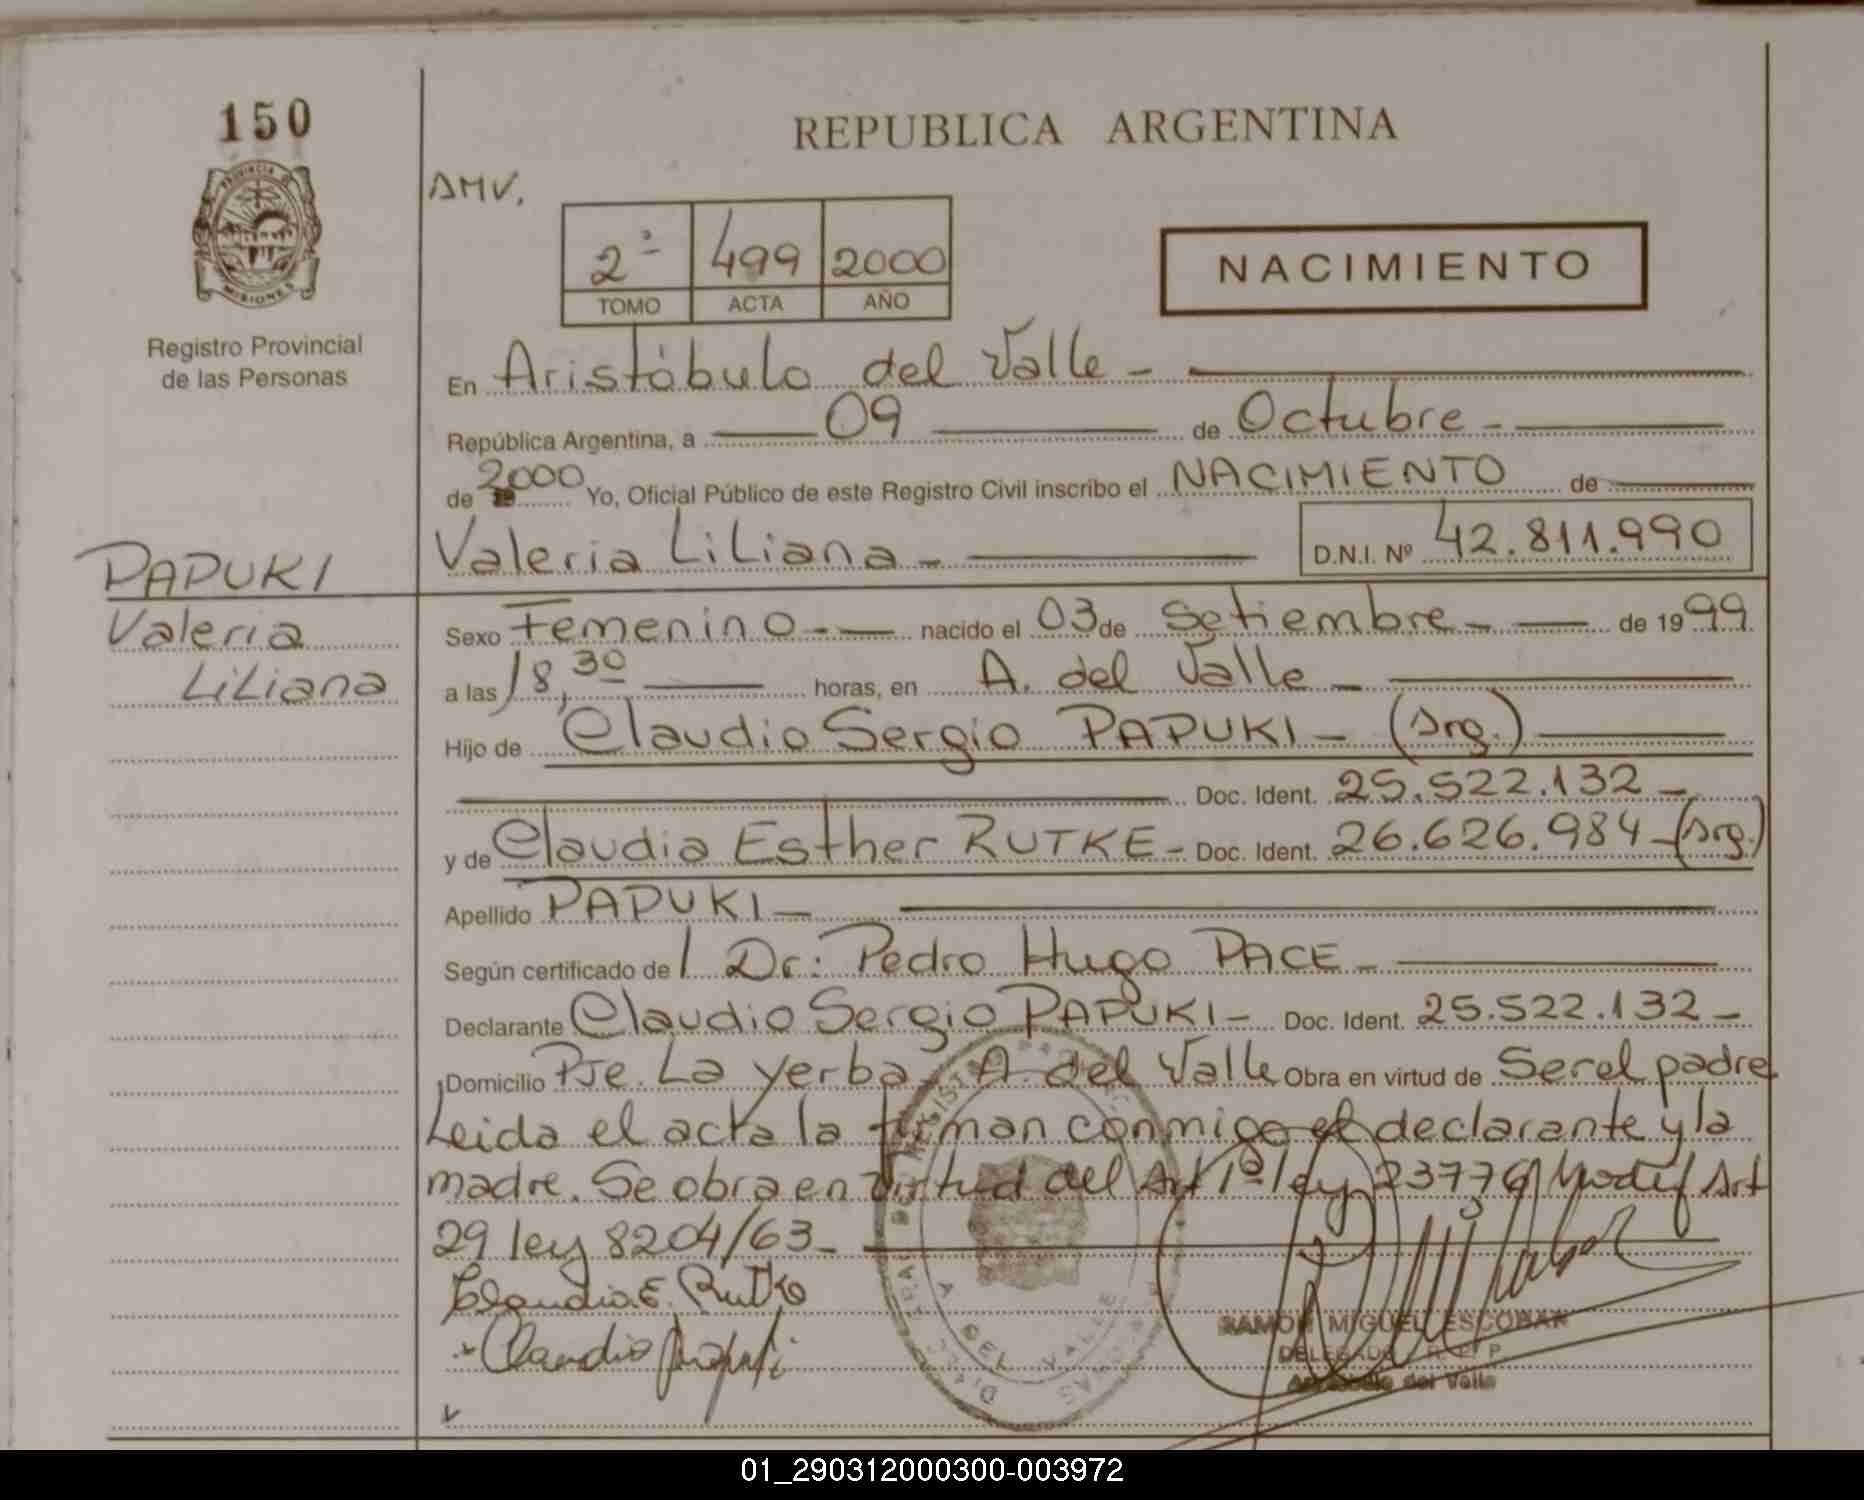 150
PROVINCIA DE
MISIONES
Registro Provincial
de las Personas
REPUBLICA ARGENTINA
AMV.
2º 499 2000
TOMO ACTA AÑO
NACIMIENTO
En Aristóbulo del Valle -
República Argentina, a 09 de Octubre -
de 2000 Yo, Oficial Público de este Registro Civil inscribo el NACIMIENTO de
Valeria Liliana - D.N.I. Nº 42.811.990
PAPUKI
Valeria
Liliana
Sexo Femenino - nacido el 03 de Setiembre - de 1999
a las 18,30 horas, en A. del Valle -
Hijo de Claudio Sergio PAPUKI - (Arg.)
Doc. Ident. 25.522.132 -
y de Claudia Esther RUTKE - Doc. Ident. 26.626.984 - (Arg.)
Apellido PAPUKI -
Según certificado de Dr: Pedro Hugo PACE -
Declarante Claudio Sergio PAPUKI - Doc. Ident. 25.522.132 -
Domicilio Pje. La yerba A. del Valle Obra en virtud de Ser el padre
Leida el acta la firman conmigo el declarante y la
madre. Se obra en virtud del Art 1º ley 23776 Modif Art
29 ley 8204/63 -
Claudia E. Rutke
Claudio Papuki
A DEL VALLE
RAMON MIGUEL ESCOBAR
DELEGADO R P P
Aristobulo del Valle
01_290312000300-003972